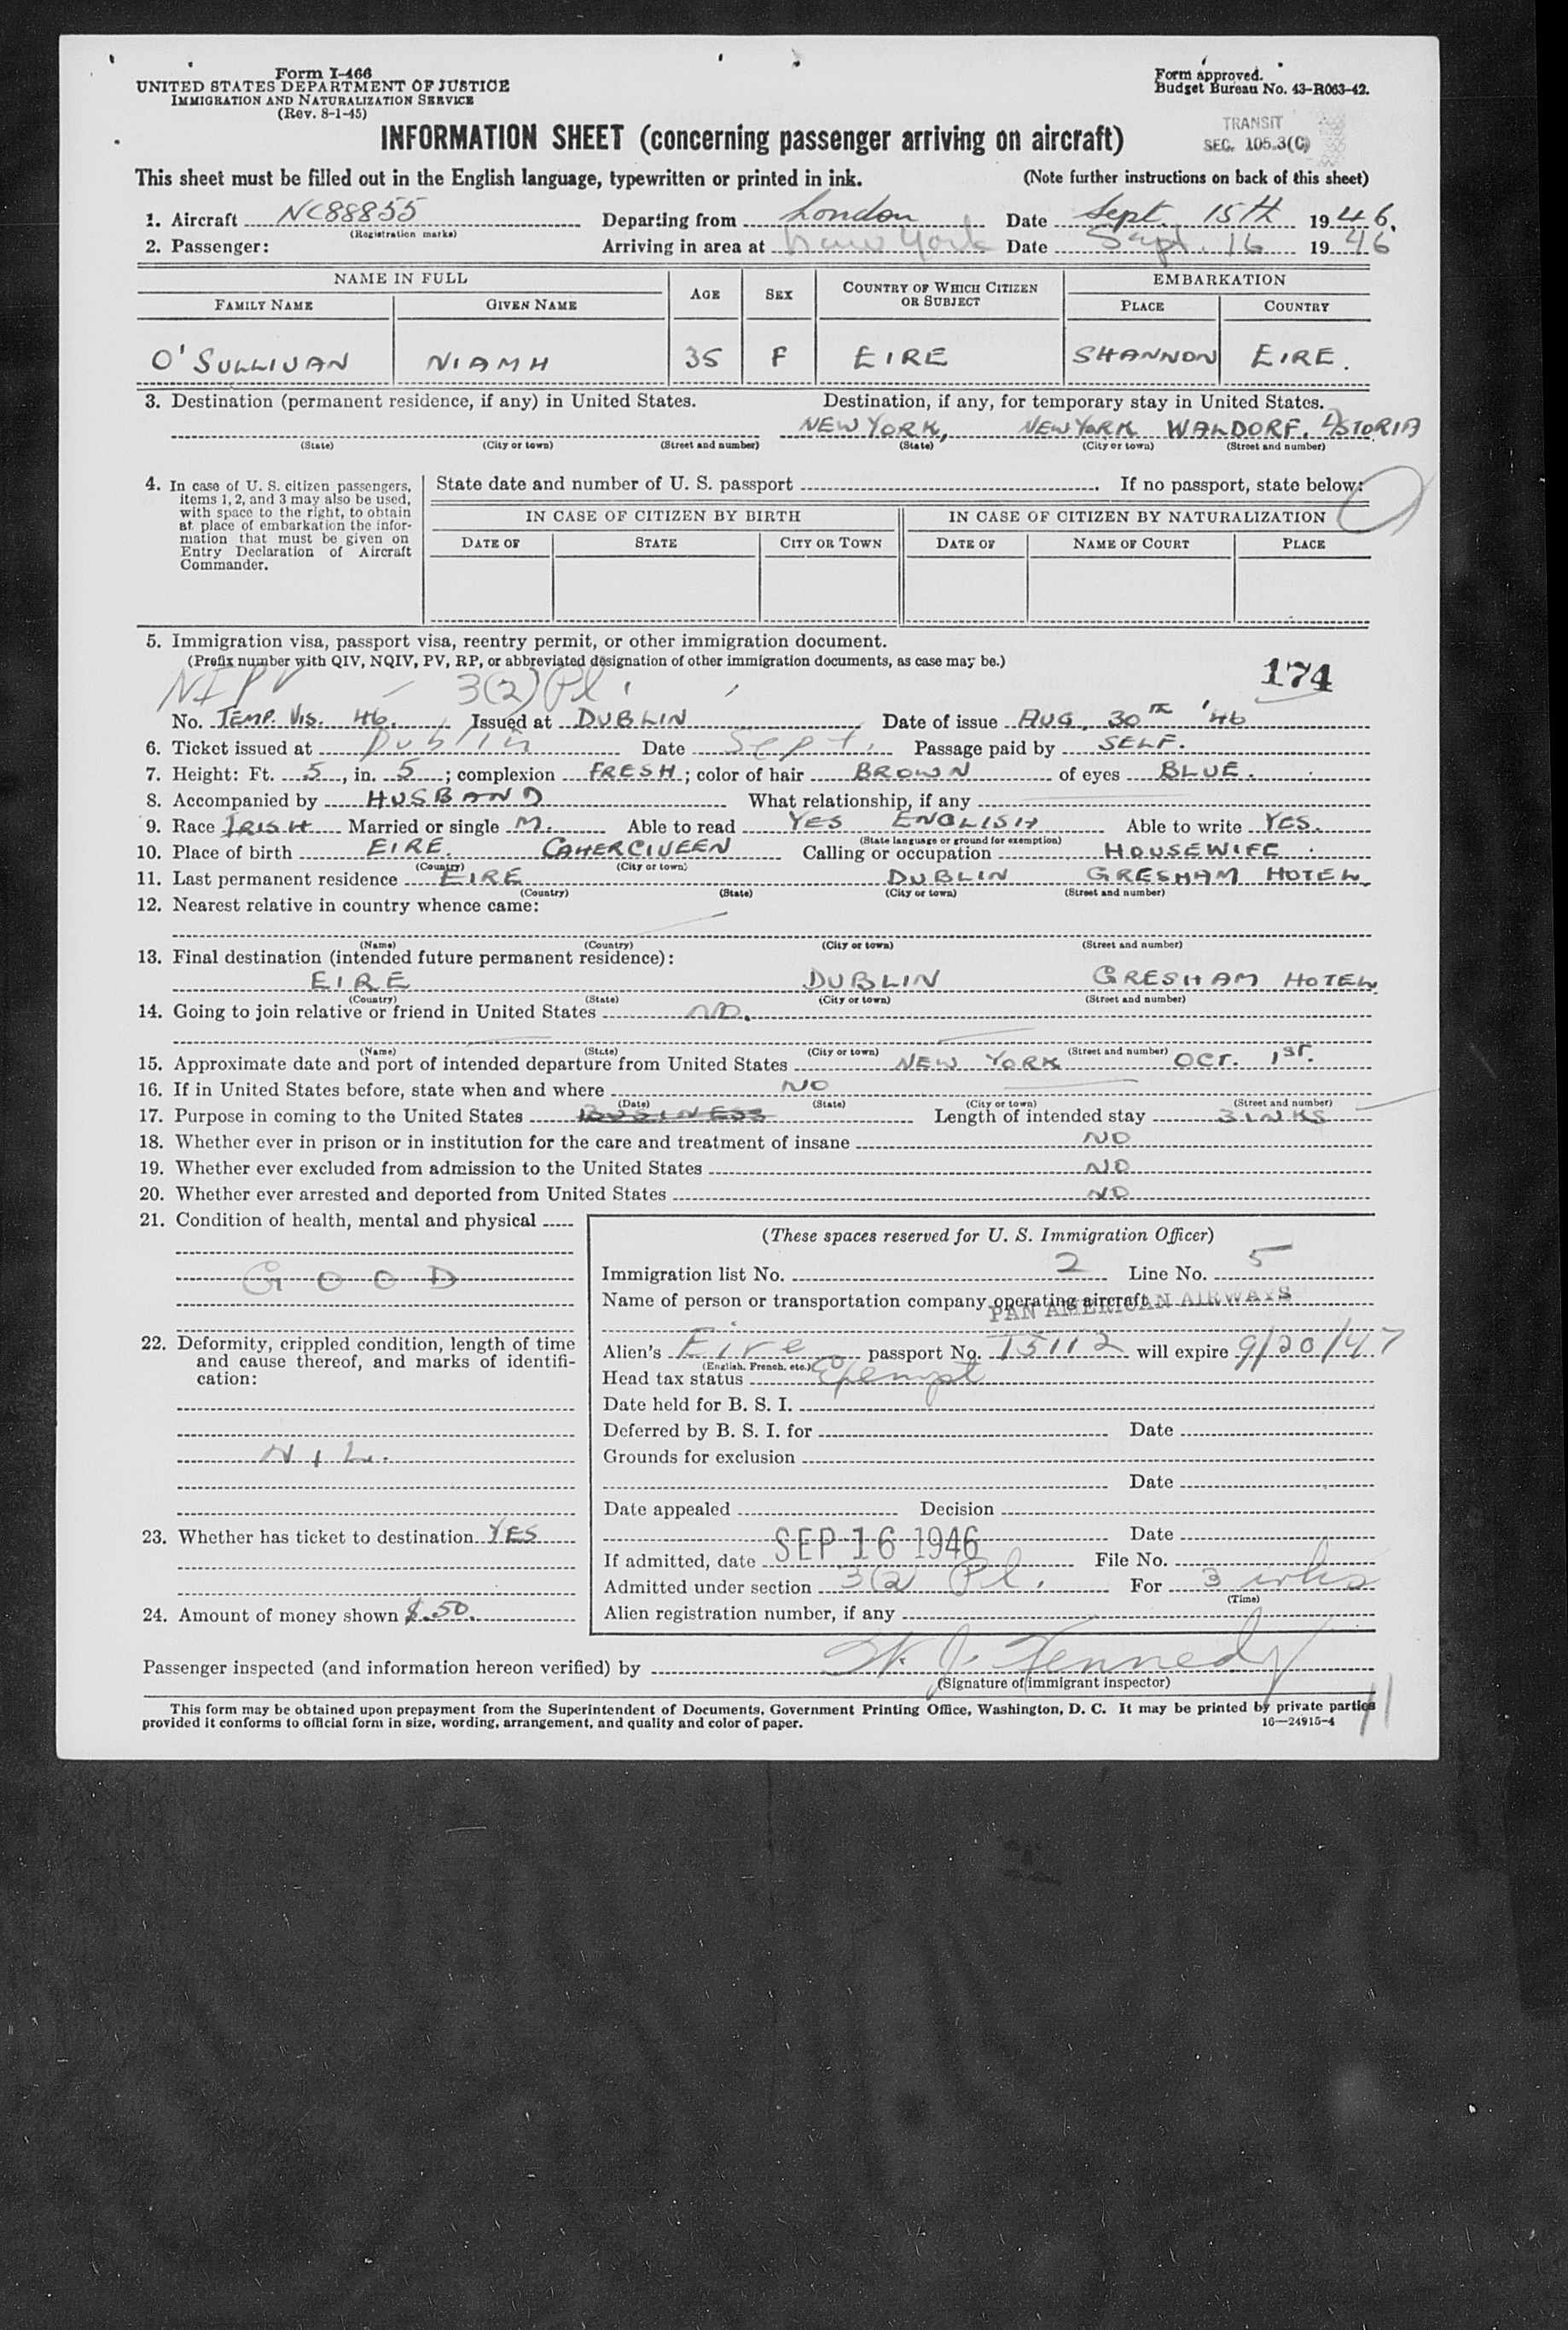 Form I-466
UNITED STATES DEPARTMENT OF JUSTICE
IMMIGRATION AND NATURALIZATION SERVICE
(Rev. 8-1-45)
Form approved.
Budget Bureau No. 43-R063-42.
INFORMATION SHEET (concerning passenger arriving on aircraft)
TRANSIT
SEC. 105.3(C)
This sheet must be filled out in the English language, typewritten or printed in ink. (Note further instructions on back of this sheet)
1. Aircraft NC88855 Departing from London Date Sept. 15th 1946.
(Registration marks)
2. Passenger: Arriving in area at New York Date Sept. 16 1946
NAME IN FULL AGE SEX COUNTRY OF WHICH CITIZEN OR SUBJECT EMBARKATION
FAMILY NAME GIVEN NAME PLACE COUNTRY
O'SULLIVAN NIAMH 35 F EIRE SHANNON EIRE.
3. Destination (permanent residence, if any) in United States. Destination, if any, for temporary stay in United States.
NEW YORK, NEW YORK WALDORF. ASTORIA
(State) (City or town) (Street and number) (State) (City or town) (Street and number)
4. In case of U. S. citizen passengers, items 1, 2, and 3 may also be used, with space to the right, to obtain at place of embarkation the information that must be given on Entry Declaration of Aircraft Commander.
State date and number of U. S. passport . If no passport, state below:
IN CASE OF CITIZEN BY BIRTH IN CASE OF CITIZEN BY NATURALIZATION
DATE OF STATE CITY OR TOWN DATE OF NAME OF COURT PLACE
5. Immigration visa, passport visa, reentry permit, or other immigration document.
(Prefix number with QIV, NQIV, PV, RP, or abbreviated designation of other immigration documents, as case may be.)
174
NIPV 3(2) Pl
No. TEMP. VIS. 46. Issued at DUBLIN Date of issue AUG, 30TH '46
6. Ticket issued at Dublin Date Sept. Passage paid by SELF.
7. Height: Ft. 5, in. 5; complexion FRESH; color of hair BROWN of eyes BLUE.
8. Accompanied by HUSBAND What relationship, if any
9. Race IRISH Married or single M. Able to read YES ENGLISH Able to write YES.
(State language or ground for exemption)
10. Place of birth EIRE. CAHERCIVEEN Calling or occupation HOUSEWIFE
(Country) (City or town)
11. Last permanent residence EIRE DUBLIN GRESHAM HOTEL
(Country) (State) (City or town) (Street and number)
12. Nearest relative in country whence came:
(Name) (Country) (City or town) (Street and number)
13. Final destination (intended future permanent residence):
EIRE DUBLIN GRESHAM HOTEL
(Country) (State) (City or town) (Street and number)
14. Going to join relative or friend in United States NO.
(Name) (State) (City or town) (Street and number)
15. Approximate date and port of intended departure from United States NEW YORK OCT. 1ST.
16. If in United States before, state when and where NO
(Date) (State) (City or town) (Street and number)
17. Purpose in coming to the United States BUSINESS Length of intended stay 3 WKS
18. Whether ever in prison or in institution for the care and treatment of insane NO
19. Whether ever excluded from admission to the United States NO
20. Whether ever arrested and deported from United States NO
21. Condition of health, mental and physical
GOOD
22. Deformity, crippled condition, length of time and cause thereof, and marks of identification:
NIL.
23. Whether has ticket to destination YES
24. Amount of money shown $.50.
(These spaces reserved for U. S. Immigration Officer)
Immigration list No. 2 Line No. 5
Name of person or transportation company operating aircraft
PAN AMERICAN AIRWAYS
Alien's Eire passport No. T5112 will expire 9/20/47
(English, French, etc.)
Head tax status Exempt
Date held for B. S. I.
Deferred by B. S. I. for Date
Grounds for exclusion
Date
Date appealed Decision
Date
If admitted, date SEP 16 1946 File No.
Admitted under section 3(2) Pl. For 3 wks
(Time)
Alien registration number, if any
Passenger inspected (and information hereon verified) by W. J. Kennedy
(Signature of immigrant inspector)
This form may be obtained upon prepayment from the Superintendent of Documents, Government Printing Office, Washington, D. C. It may be printed by private parties
provided it conforms to official form in size, wording, arrangement, and quality and color of paper. 16—24915-4